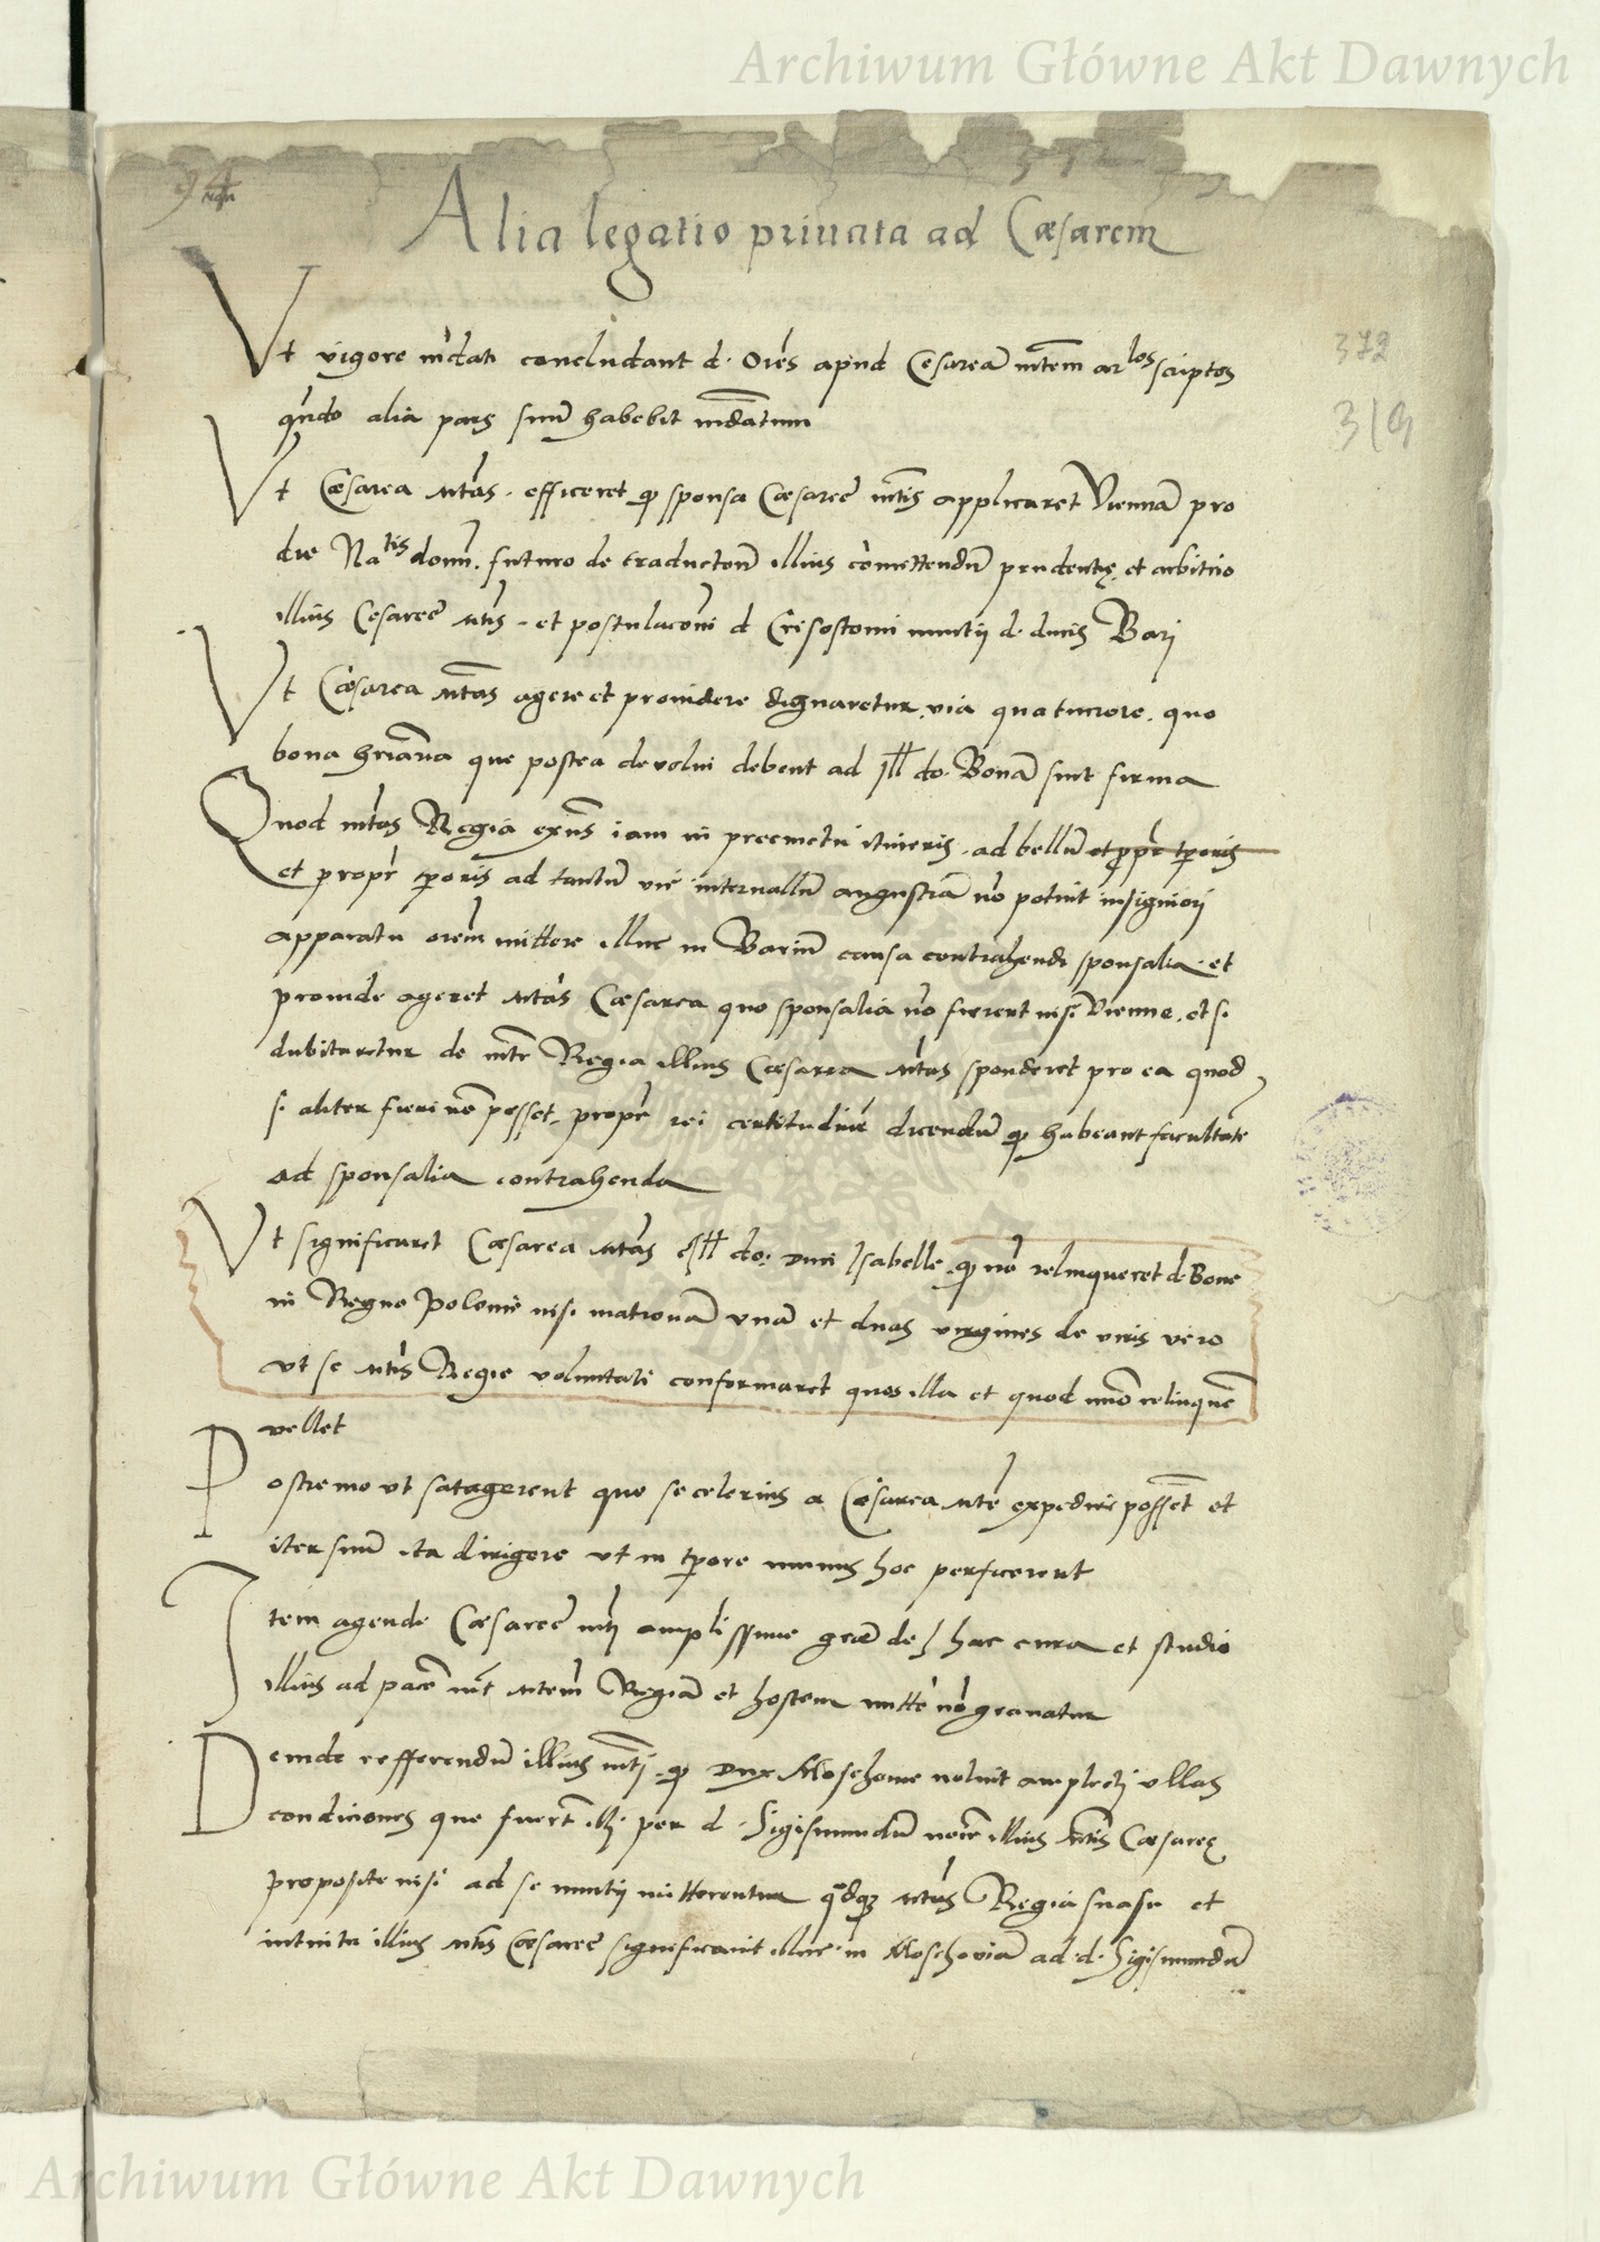 Archiwum Główne Akt Dawnych
94
Alia legatio priuata ad Cæsarem
372
319
Vt vigore mdati concludant d. Ores apud Cesarea mtem ar los scriptos
qndo alia pars suu habebit mdatum
Vt Cæsarea Mtas. efficeret qp sponsa Cæsaree mtis applicaret Vienna pro
die Na tis domi. futuro de traductoe illius comettendu prudentię et arbitrio
illius Cesaree Mtis. et postulaconi d Crisostomi nuntij d. ducis Barj
Vt Cæsarea Mtas agere et prouidere dignaretur via qua tuciore. quo
bona hriaria que postea deuolui debent ad Ill do. Bona sint firma
Quod mtas Regia exns iam in precinctu itineris. ad bellu et ppr tporis
et propr tporis ad tantu vie interuallu angustia no potuit insigniorj
apparatu orem mittere illuc in Bariu causa contrahendi sponsalia. et
proinde ageret Mtas Cæsarea quo sponsalia no fierent nisi Vienne. et si
dubitaretur de mte Regia illius Cæsarea Mtas sponderet pro ea quod
si aliter fieri no posset. propr rei certitudine dicendu qp habeant facultate
ad sponsalia contrahenda
Vt significaret Cæsarea Mtas Ill do. Duci Isabelle qp no relinqueret d. Bone
in Regno Polonie nisi matrona vna et duas virgines de viris vero
vt se Mtis Regie voluntati conformaret quos illa et quod numo relinquere
vellet
Postremo vt satagerent quo se celerius a Cæsarea Mte expedire possent et
iter suu ita dirigere vt in tpore munus hoc perficerent
Item agende Cæsaree mtj amplissime grae de hac cura et studio
illius ad pace int Mtem Regia et hostem mitte no grauatur
Deinde refferendu illius mtj. qp Dux Moschouie noluit amplectj vllas
condiciones que fuert illj per d. Sigismundu notre illius Mtis Cæsareę
proposite nisi ad se nuntij mitterentur qdqz Mtas Regia suasu et
intuitu illius Mtis Cæsaree significauit illuc in Moschouia ad d. Sigismundu
Archiwum Główne Akt Dawnych